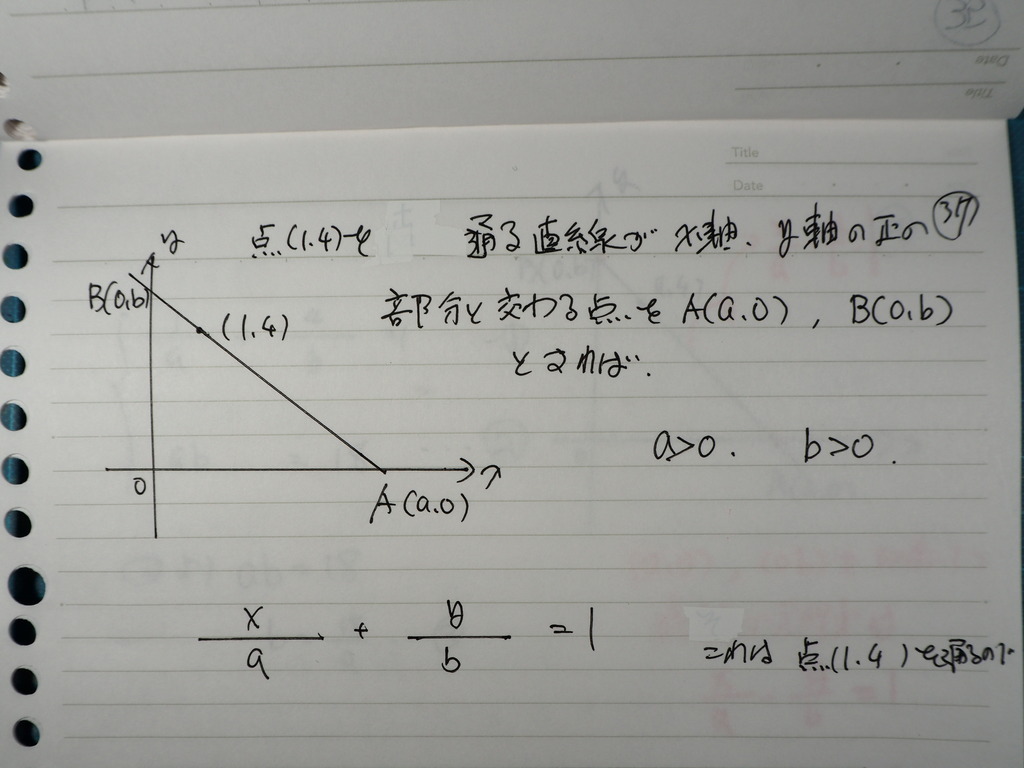 Date
Title
Title
Date
点(1.4)を 通る直線が x軸、y軸の正の 37
y
B(0,b)
(1.4)
部分と交わる点をA(a.0), B(0,b)
とすれば.
a>0. b>0.
0
A(a.0)
x/a + y/b = 1
これは 点(1.4)を通るので